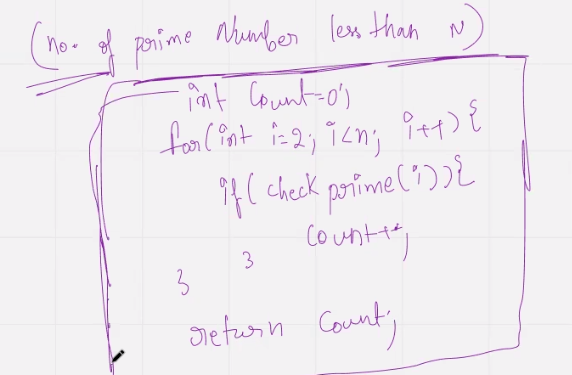 (no. of prime Number less than N)
int Count=0;
for(int i=2; i<n; i++){
if( check prime(i)){
Count++;
}
}
return Count;